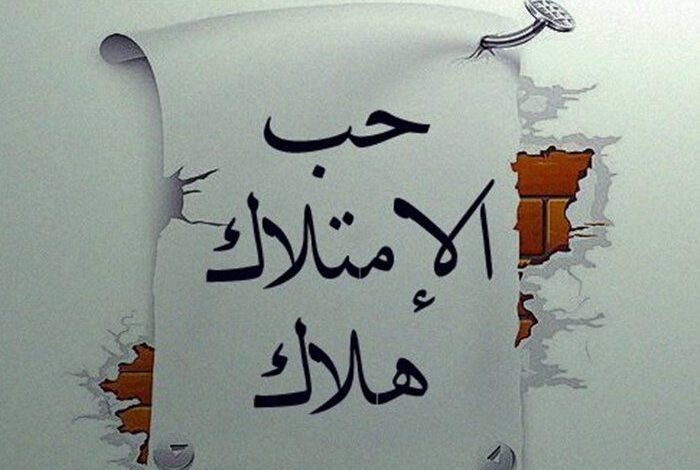 حب
الإمتلاك
هلاك